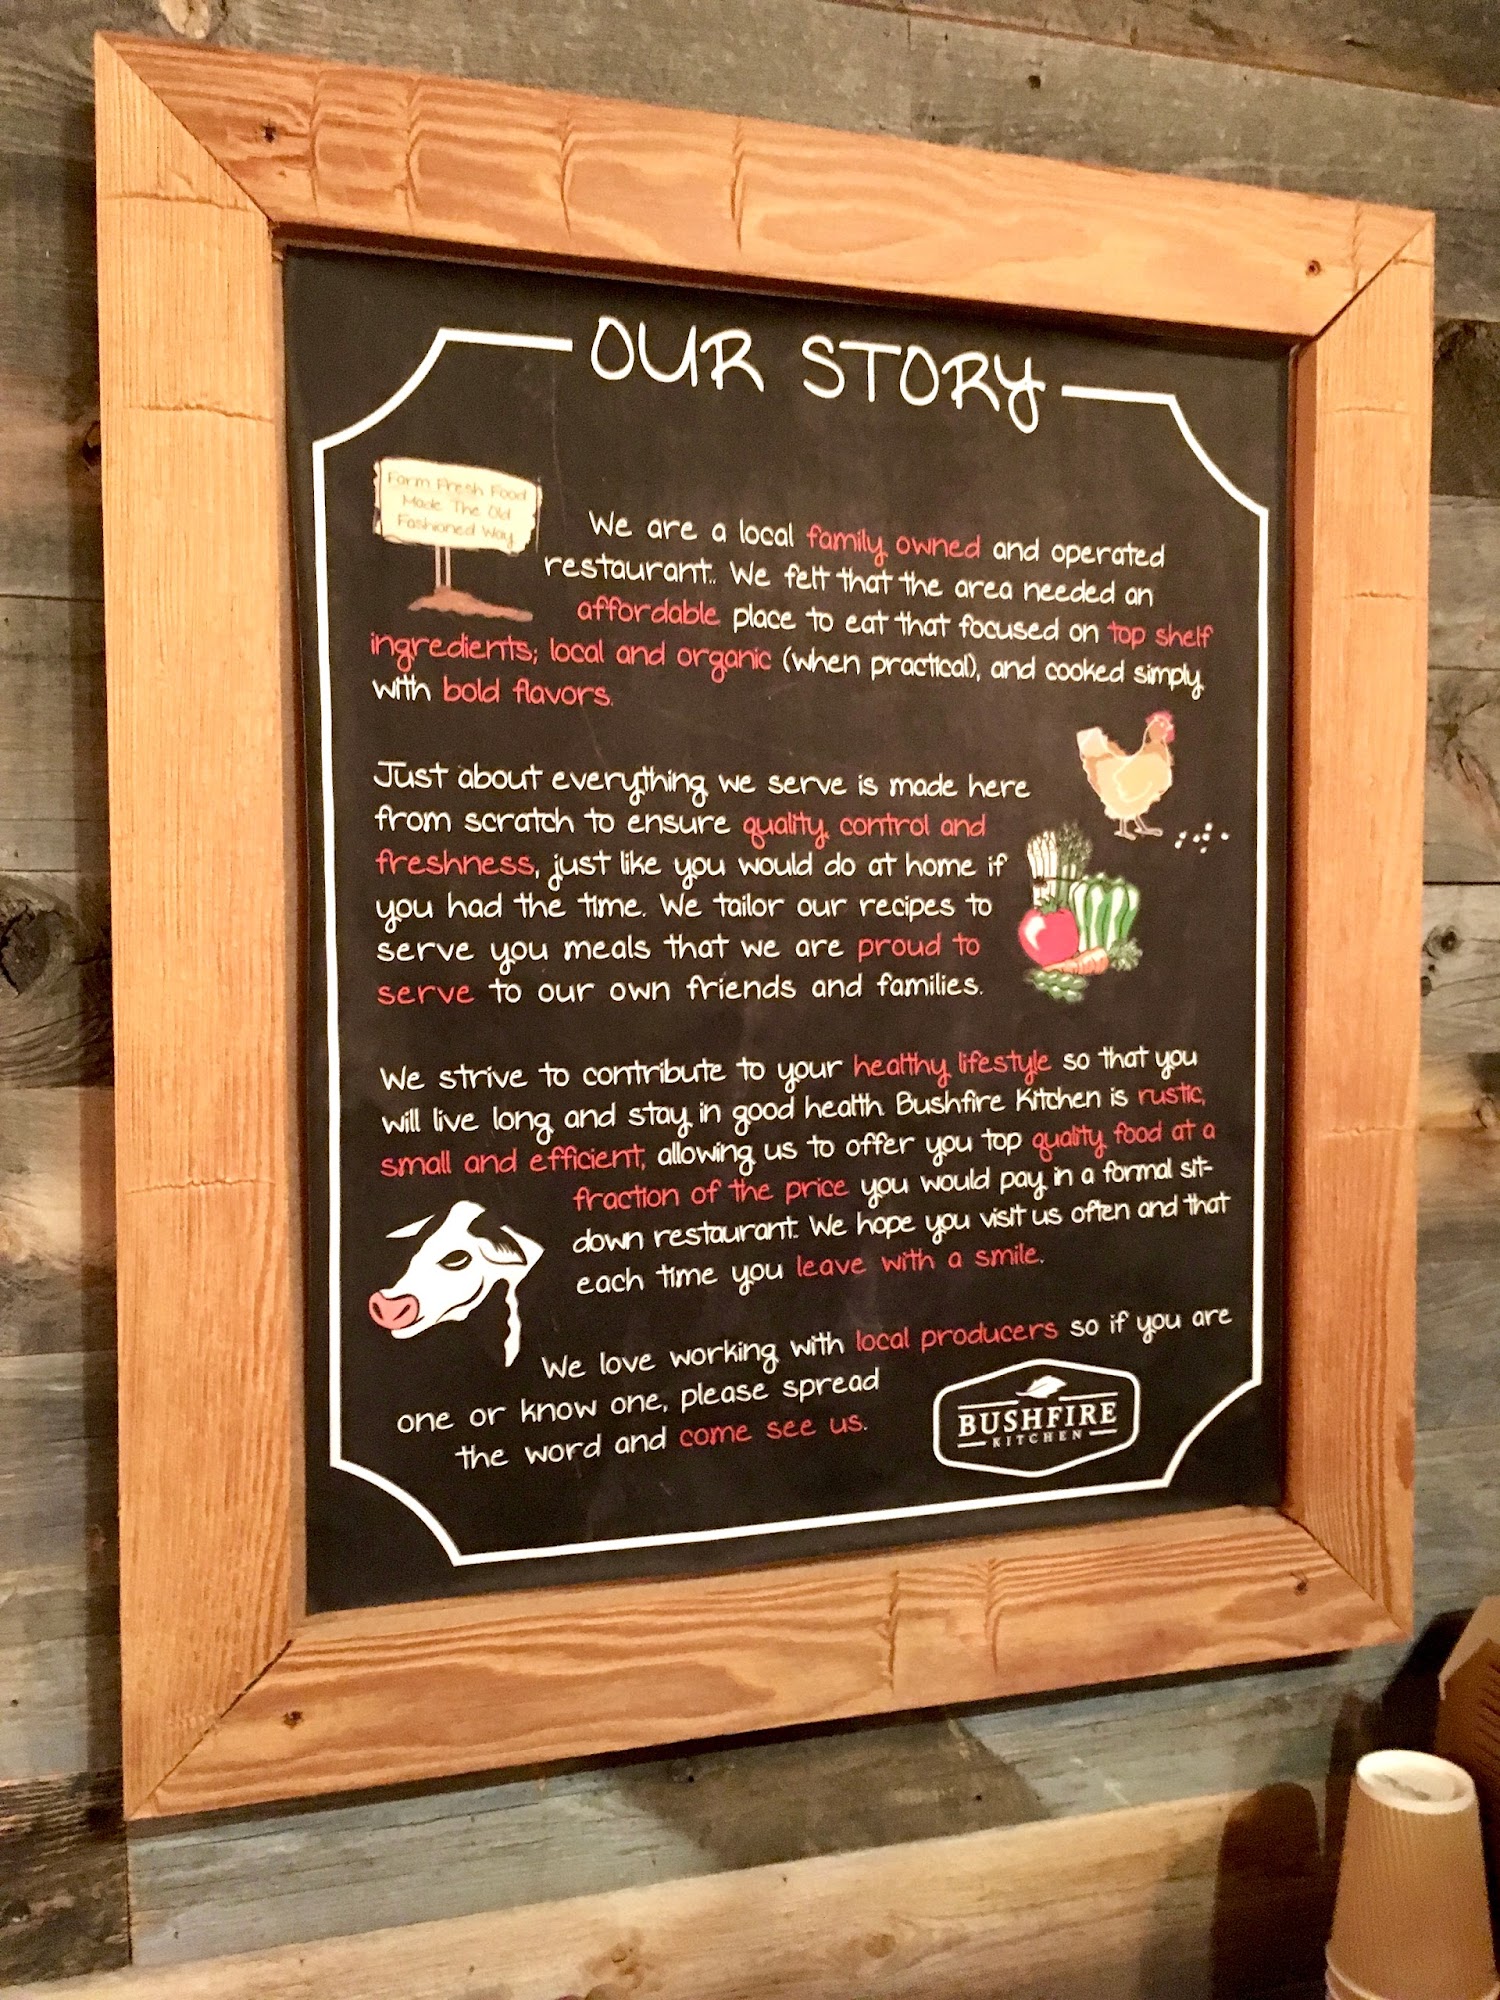 OUR STORY
Farm Fresh Food
Made The Old
Fashioned Way
We are a local family owned and operated
restaurant.. We felt that the area needed an
affordable place to eat that focused on top shelf
ingredients; local and organic (when practical), and cooked simply
with bold flavors.
Just about everything we serve is made here
from scratch to ensure quality, control and
freshness, just like you would do at home if
you had the time. We tailor our recipes to
serve you meals that we are proud to
serve to our own friends and families.
We strive to contribute to your healthy lifestyle so that you
will live long and stay in good health. Bushfire Kitchen is rustic,
small and efficient, allowing us to offer you top quality food at a
fraction of the price you would pay in a formal sit-
down restaurant. We hope you visit us often and that
each time you leave with a smile.
We love working with local producers so if you are
one or know one, please spread
the word and come see us.
BUSHFIRE
KITCHEN